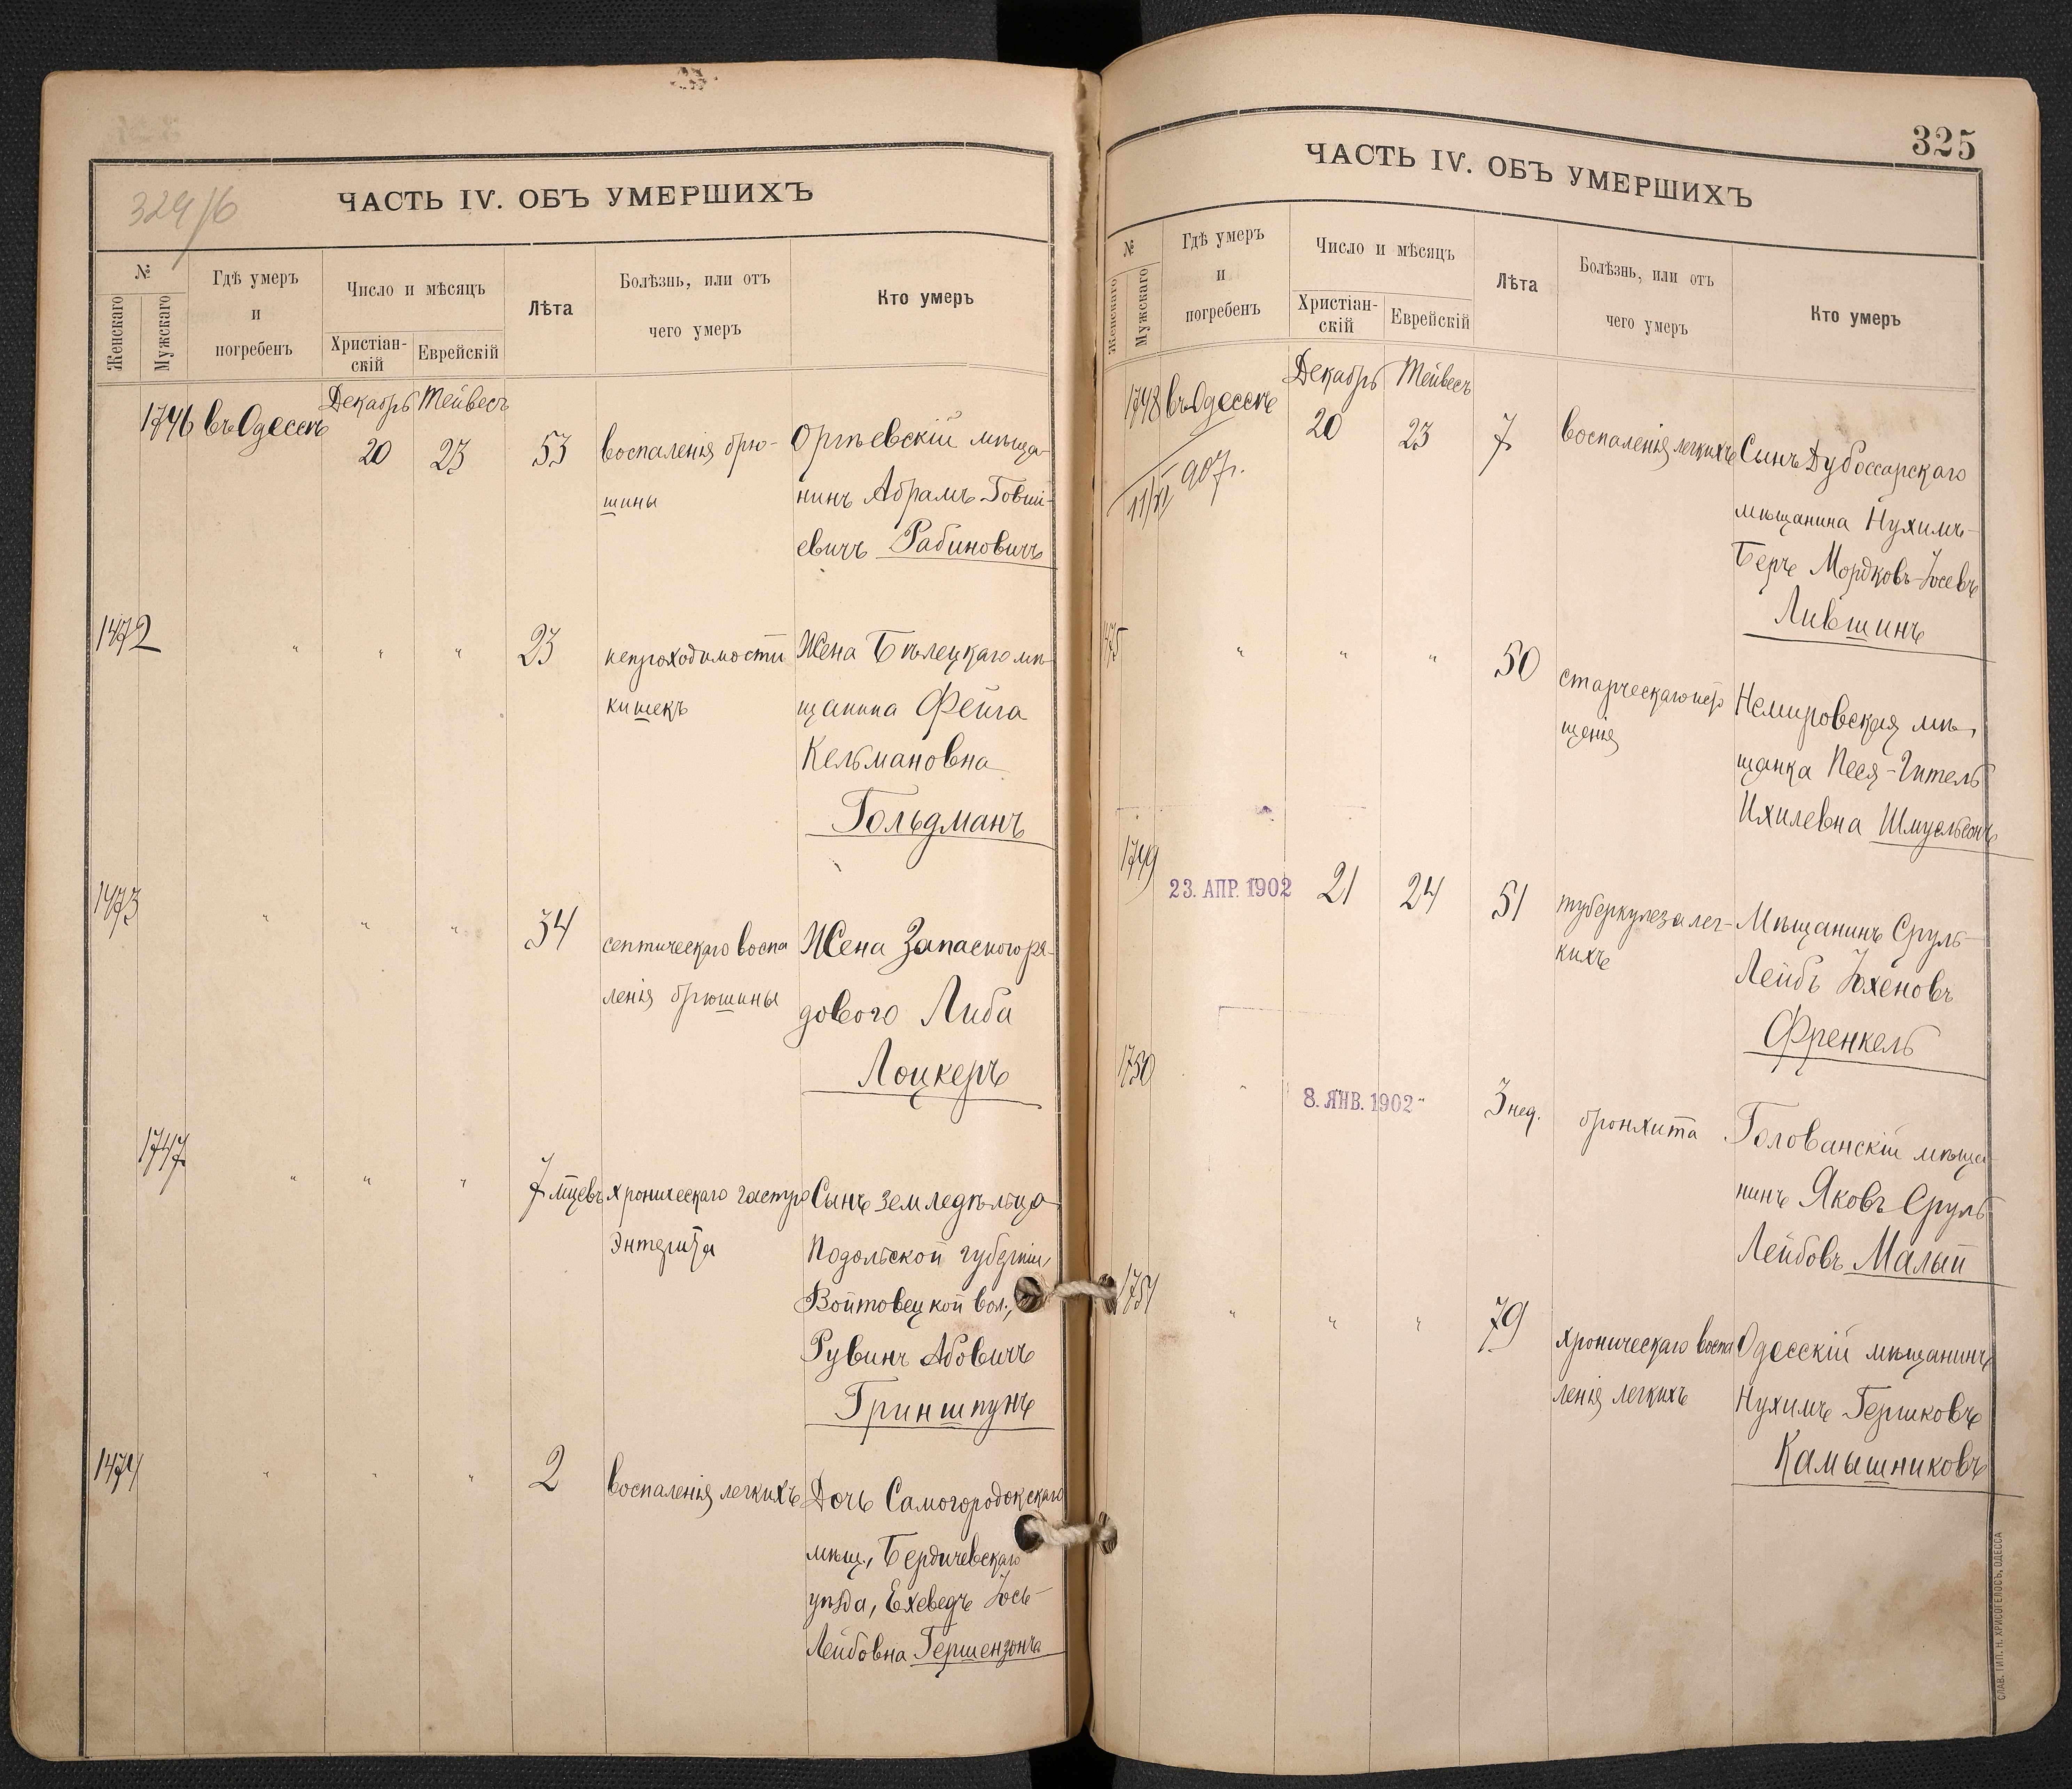 324/б
ЧАСТЬ IV. ОБЪ УМЕРШИХЪ
№
Женскаго
Мужскаго
Гдѣ умеръ
и
погребенъ
Число и мѣсяцъ
Христіан-
скій
Еврейскій
Лѣта
Болѣзнь, или отъ
чего умеръ
Кто умеръ
Декабрь Тейвесъ
1746 въ Одессѣ 20 23 53 воспаленія брю- Оргѣевскій мѣща-
шины нинъ Абрамъ Говши-
евичъ Рабиновичъ
1472 " " " 23 непроходимости Жена Бѣлецкаго мѣ-
кишекъ щанина Фейга
Кельмановна
Гольдманъ
1473 " " " 34 септическаго воспа Жена Запасного ря-
ленія брюшины дового Либа
Лоцкеръ
1747 " " " 7 мцевъ хроническаго гастро Сынъ земледѣльца
Энтерита Подольской губерніи,
Войтовецкой вол.,
Рувинъ Абовичъ
Гриншпунъ
1474 " " " 2 воспаленія легкихъ Дочь Самогородокскаго
мѣщ., Бердичевскаго
уѣзда, Ехеведъ Іось-
Лейбовна Гершензонъ
325
ЧАСТЬ IV. ОБЪ УМЕРШИХЪ
№
Женскаго
Мужскаго
Гдѣ умеръ
и
погребенъ
Число и мѣсяцъ
Христіан-
скій
Еврейскій
Лѣта
Болѣзнь, или отъ
чего умеръ
Кто умеръ
Декабрь Тейвесъ
1748 въ Одессѣ 20 23 7 воспаленія легкихъ Сынъ Дубоссарскаго
11/XI 907 г. мѣщанина Нухимъ-
Беръ Мордковъ-Іосевъ
Лившинъ
1475 " " " 50 старческаго Немировская мѣ-
щенія щанка Песя-Гитель
Ихилевна Шмуельсонъ
1749 23. АПР. 1902 21 24 51 туберкулеза лег- Мѣщанинъ Сруль-
кихъ Лейбъ Іохеновъ
Френкель
1750 " 8. ЯНВ. 1902 " 3 нед. бронхита Голованскій мѣща-
нинъ Яковъ Сруль
Лейбовъ Малый
1751 " " " 79 хроническаго воспа Одесскій мѣщанинъ
ленія легкихъ Нухимъ Гершковъ
Камышниковъ
СЛАВ. ТИП. Н. ХРИСОГЕЛОСЪ, ОДЕССА